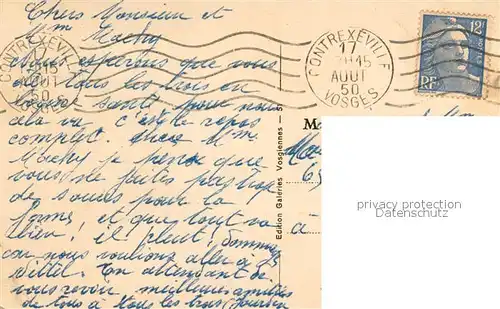 Chers Monsieur et
Mme Mochy
Nous esperons que vous
êtes tous les trois en
bonne santé pour nous
cela va c'est le repos
complet. Chere Mme
Mochy je pense que
vous ne faites pas trop
de soucis pour la
forme et que tout va
bien! il pleut! Dommage
car nous voulions aller à
Vittel. En attendant de
vous revoir, meilleures amitiés
de tous à tous les trois
CONTREXÉVILLE
17
15
AOUT
50
CONTREXÉVILLE
17
H15
AOUT
50
VOSGES
12F
RF
Edition Galeries Vosgiennes
M
65
à
privacy protection
Datenschutz